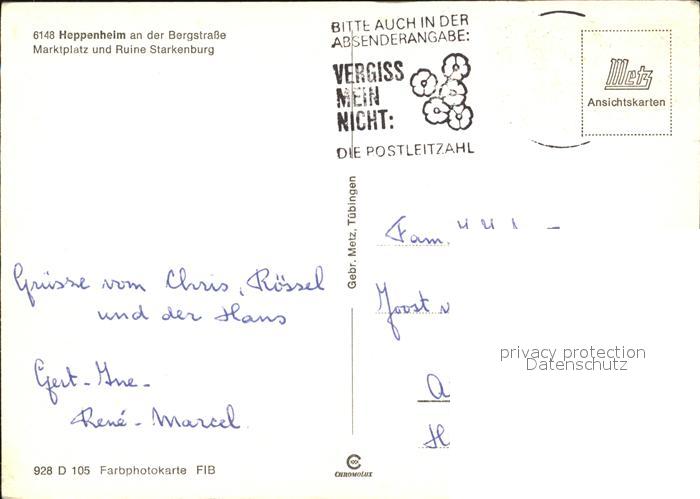 6148 Heppenheim an der Bergstraße
Marktplatz und Ruine Starkenburg
BITTE AUCH IN DER
ABSENDERANGABE:
VERGISS
MEIN
NICHT:
DIE POSTLEITZAHL
Metz
Ansichtskarten
Gebr. Metz, Tübingen
Fam.
Grüsse vom Chris, Rössel
und der Hans
Joost v
privacy protection
Datenschutz
Gert-Ine-
René-Marcel
A
H
928 D 105 Farbphotokarte FIB
CHROMOLUX